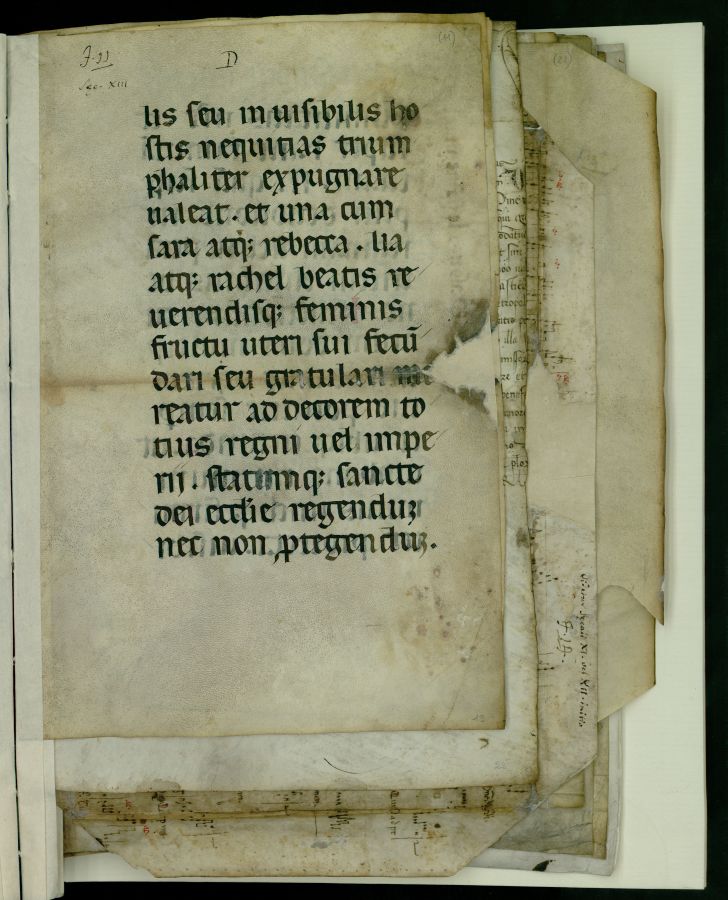 F. 11
D
(11)
(22)
Saec. XIII
lis seu inuisibilis ho
stis nequitias trium
phaliter expugnare
ualeat. et una cum
sara atq; rebecca. lia
atq; rachel beatis re
uerendisq; feminis
fructu uteri sui fecū
dari seu gratulari me
reatur ad decorem to
tius regni uel impe
rii. statumq; sancte
dei eccl̄ie regenduꝫ
nec non ꝓtegenduꝫ.